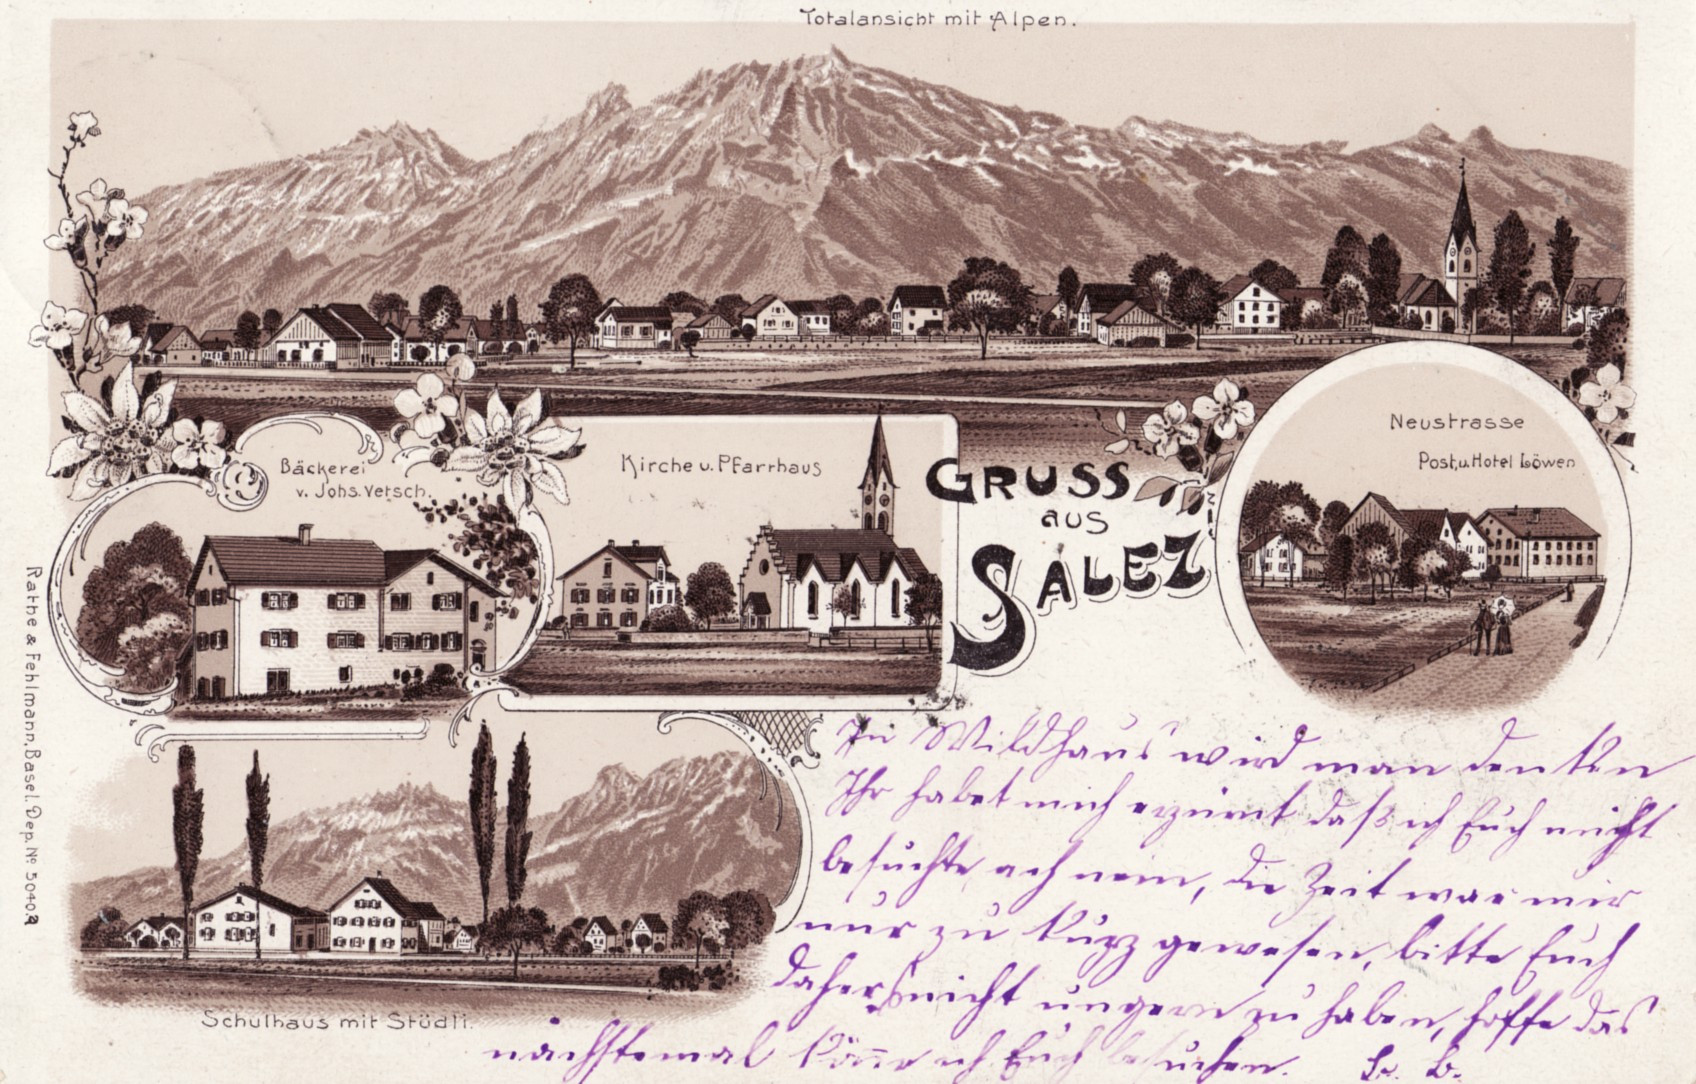 Totalansicht mit Alpen.
Bäckerei
v. Johs. Vetsch.
Kirche u. Pfarrhaus
GRUSS
aus
SALEZ
Neustrasse
Post, u. Hotel Löwen
Schulhaus mit Stüdli.
Rathe & Fehlmann, Basel. Dep. No 5040.
In Wildhaus wird man denken
Ihr habet mich erzürnt daß ich Euch nicht
besuchte, ach nein, die Zeit war mir
nur zu kurz gewesen, bitte Euch
daher nicht ungern zu haben, hoffe das
nächstemal könne ich Euch besuchen.